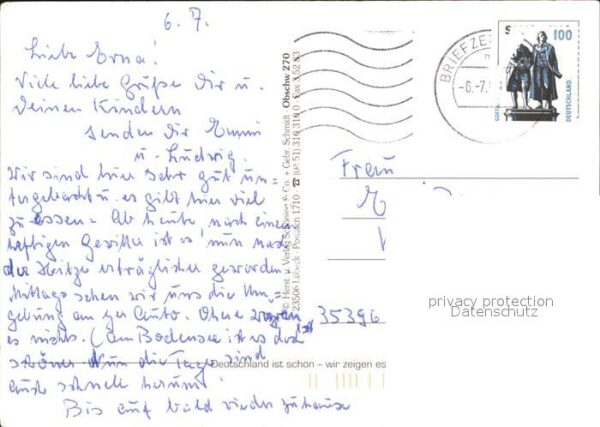 6. 7.
Liebe Erna!
Viele liebe Grüße Dir u.
Deinen Kindern
senden Dir Emmi
u. Ludwig.
Wir sind hier sehr gut un-
tergebracht u. es gibt hier viel
zu essen. Ab heute, nach einem
heftigen Gewitter ist es nun nach
der Hitze erträglicher geworden
Mittags sehen wir uns die Um-
gebung an per Auto. Ohne Wagen
es nichts. (Am Bodensee ist es doch
schöner Nun die Tage sind
auch schnell herum!
Bis auf bald wieder zuhause
© Herst. u. Verlag Schöning & Co. + Gebr. Schmidt Obschw 270
23506 Lübeck · Postfach 1710 ☎ (0451) 310 310 0 Fax 3 52 83
BRIEFZE
-6.-7.
100
DEUTSCHLAND
Frau
35396
privacy protection
Datenschutz
Deutschland ist schön – wir zeigen es